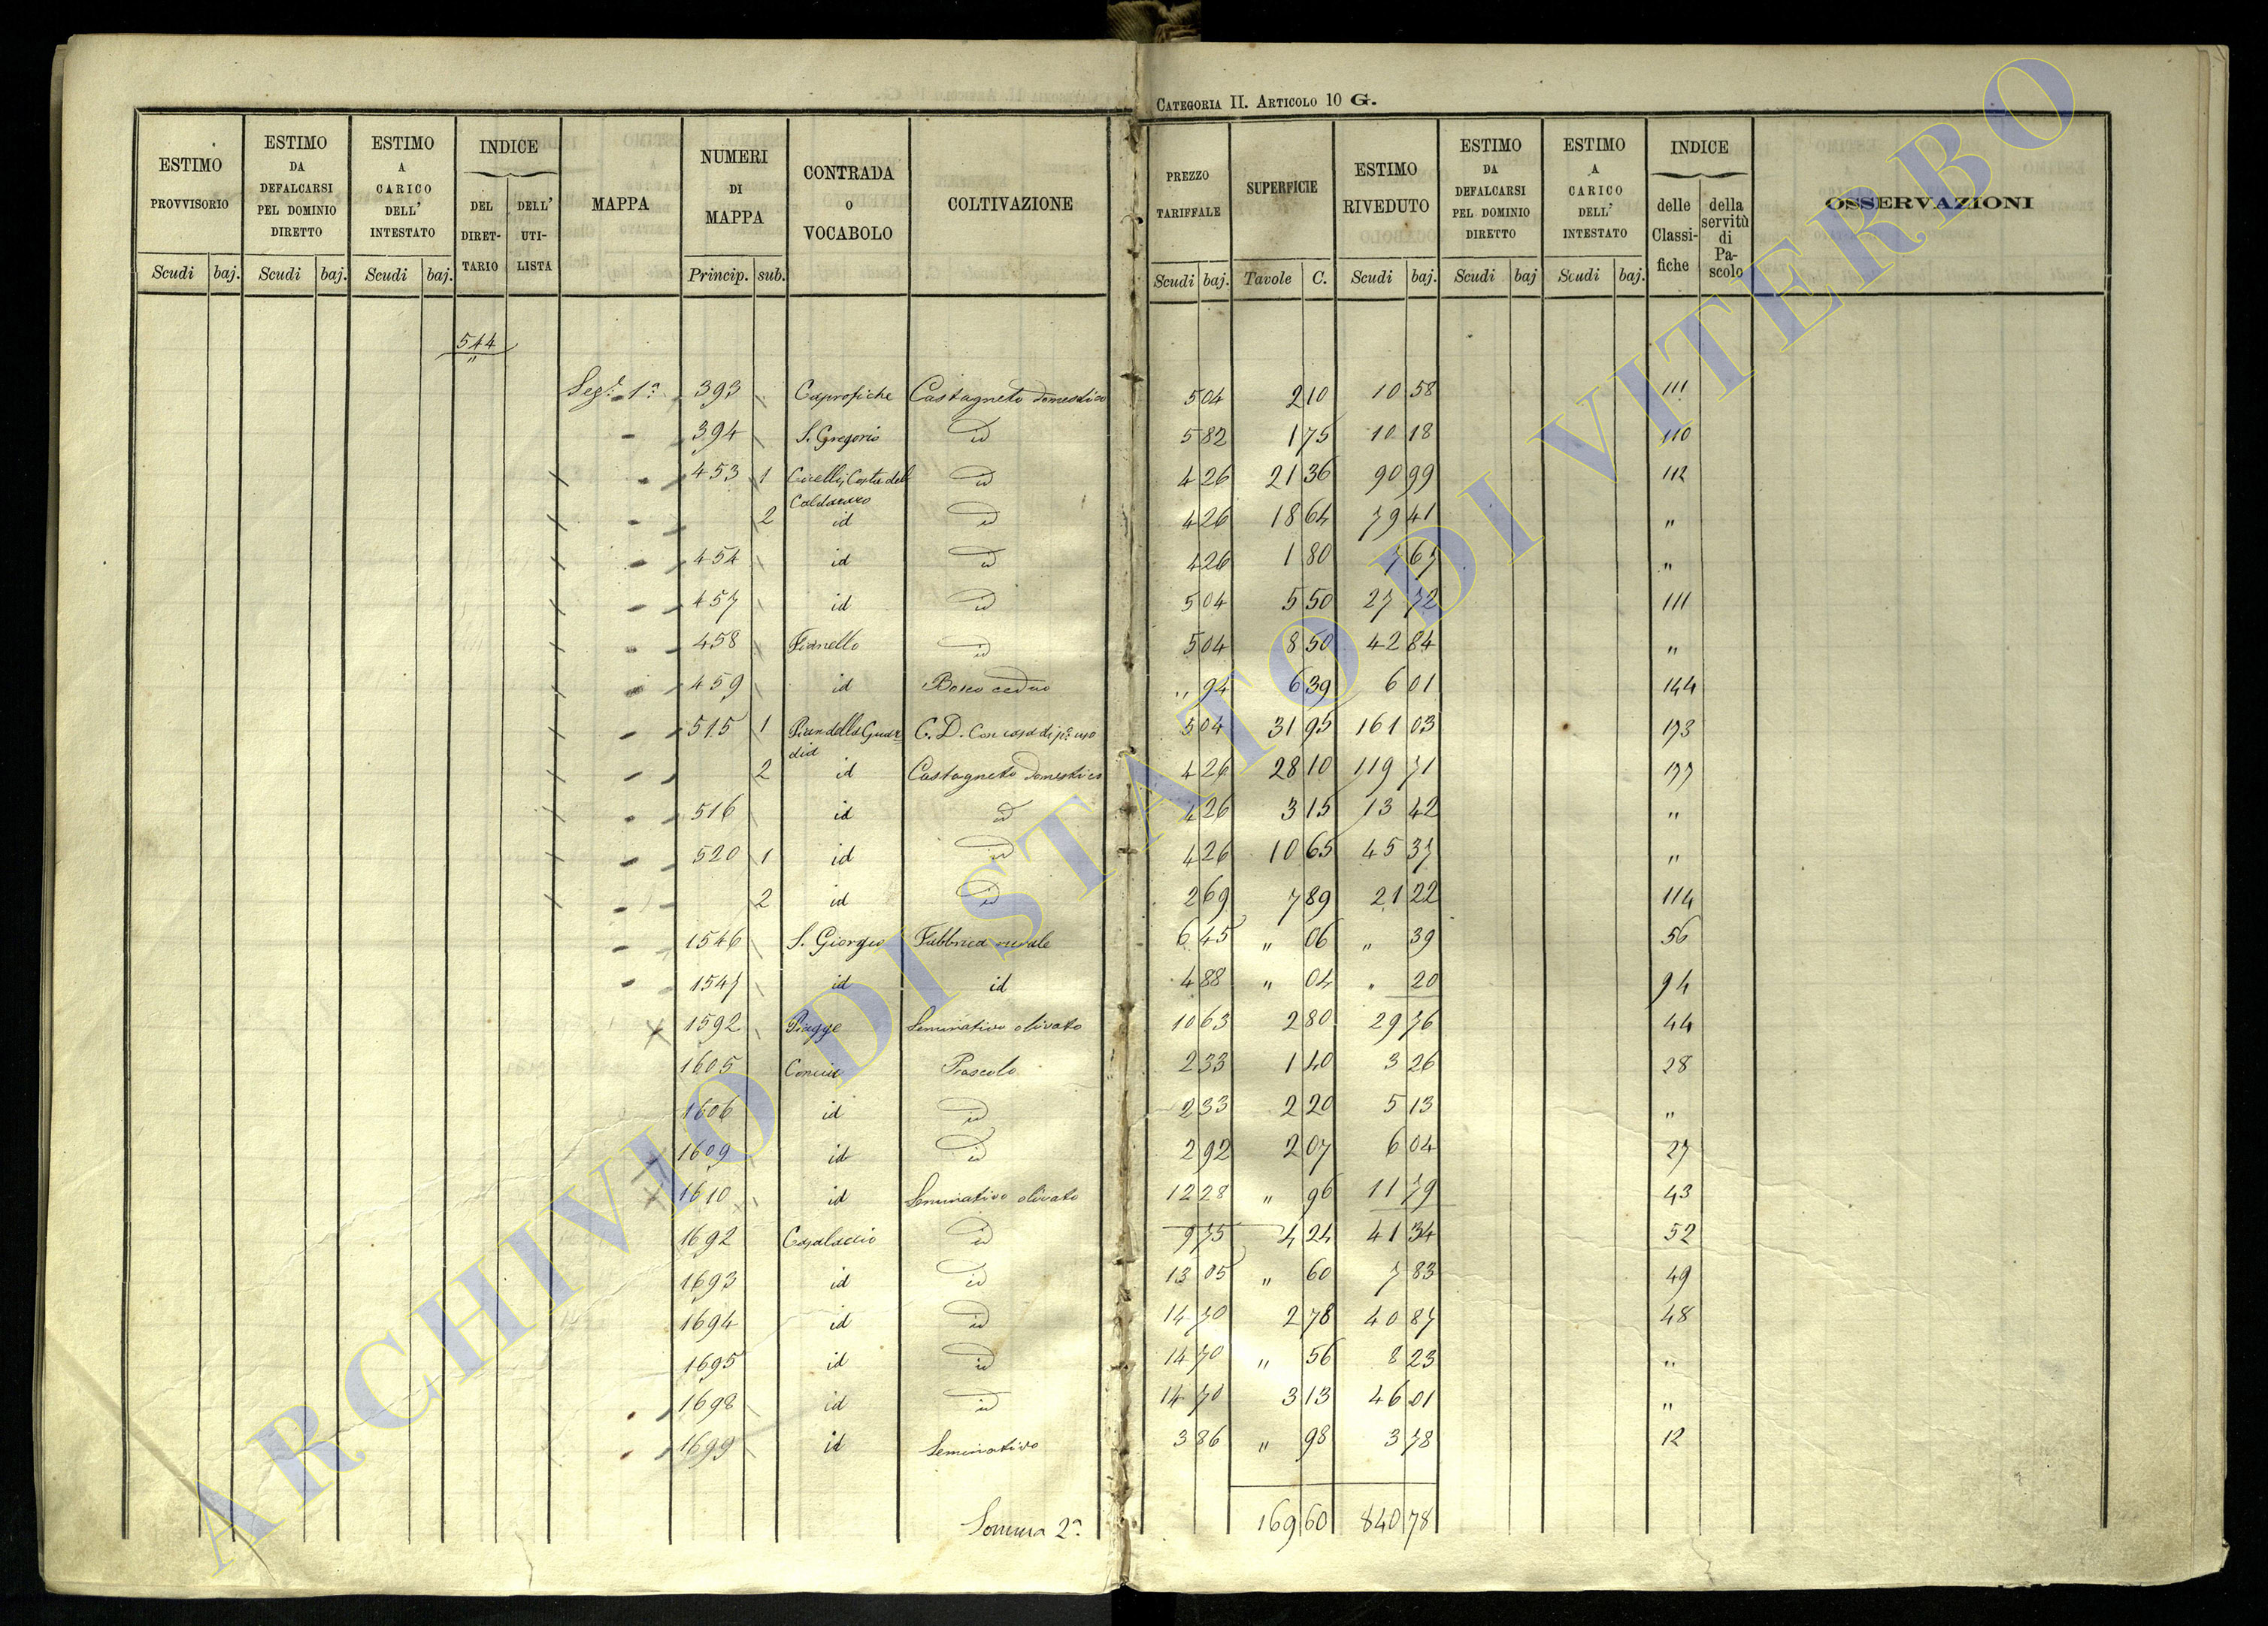 CATEGORIA II. ARTICOLO 10 G.
ESTIMO PROVVISORIO Scudi baj. | ESTIMO DA DEFALCARSI PEL DOMINIO DIRETTO Scudi baj. | ESTIMO A CARICO DELL' INTESTATO Scudi baj. | INDICE DEL DIRETTARIO DELL' UTILISTA | MAPPA | NUMERI DI MAPPA Princip. sub. | CONTRADA O VOCABOLO | COLTIVAZIONE | PREZZO TARIFFALE Scudi baj. | SUPERFICIE Tavole C. | ESTIMO RIVEDUTO Scudi baj. | ESTIMO DA DEFALCARSI PEL DOMINIO DIRETTO Scudi baj | ESTIMO A CARICO DELL' INTESTATO Scudi baj. | INDICE delle Classifiche della servitù di Pascolo | OSSERVAZIONI
544
"
Seg.e 1a 393 Caprofiche Castagneto domestico 5 04 2 10 10 58 111
394 S. Gregorio id 5 82 1 75 10 18 110
453 1 Costa del 
Caldararo id 4 26 21 36 90 99 112
2 id id 4 26 18 64 79 41 "
454 id id 4 26 1 80 7 67 "
457 id id 5 04 5 50 27 72 111
458 Fianello id 5 04 8 50 42 84 "
459 id Bosco ceduo " 94 6 39 6 01 144
515 1 Pian della Guar=
dia C. D. con casa di po uso 5 04 31 95 161 03 173
2 id Castagneto domestico 4 26 28 10 119 71 177
516 id id 4 26 3 15 13 42 "
520 1 id id 4 26 10 65 45 37 "
2 id id 2 69 7 89 21 22 114
1546 S. Giorgio Fabbrica rurale 6 45 " 06 " 39 56
1547 id id 4 88 " 04 " 20 94
1592 Piagge Seminativo olivato 10 63 2 80 29 76 44
1605 Concia Pascolo 2 33 1 40 3 26 28
1606 id id 2 33 2 20 5 13 "
1609 id id 2 92 2 07 6 04 27
1610 id Seminativo olivato 12 28 " 96 11 79 43
1692 Casalaccio id 9 75 4 24 41 34 52
1693 id id 13 05 " 60 7 83 49
1694 id id 14 70 2 78 40 87 48
1695 id id 14 70 " 56 8 23 "
1698 id id 14 70 3 13 46 01 "
1699 id Seminativo 3 86 " 98 3 78 12
Somma 2a 169 60 840 78
ARCHIVIO DI STATO DI VITERBO